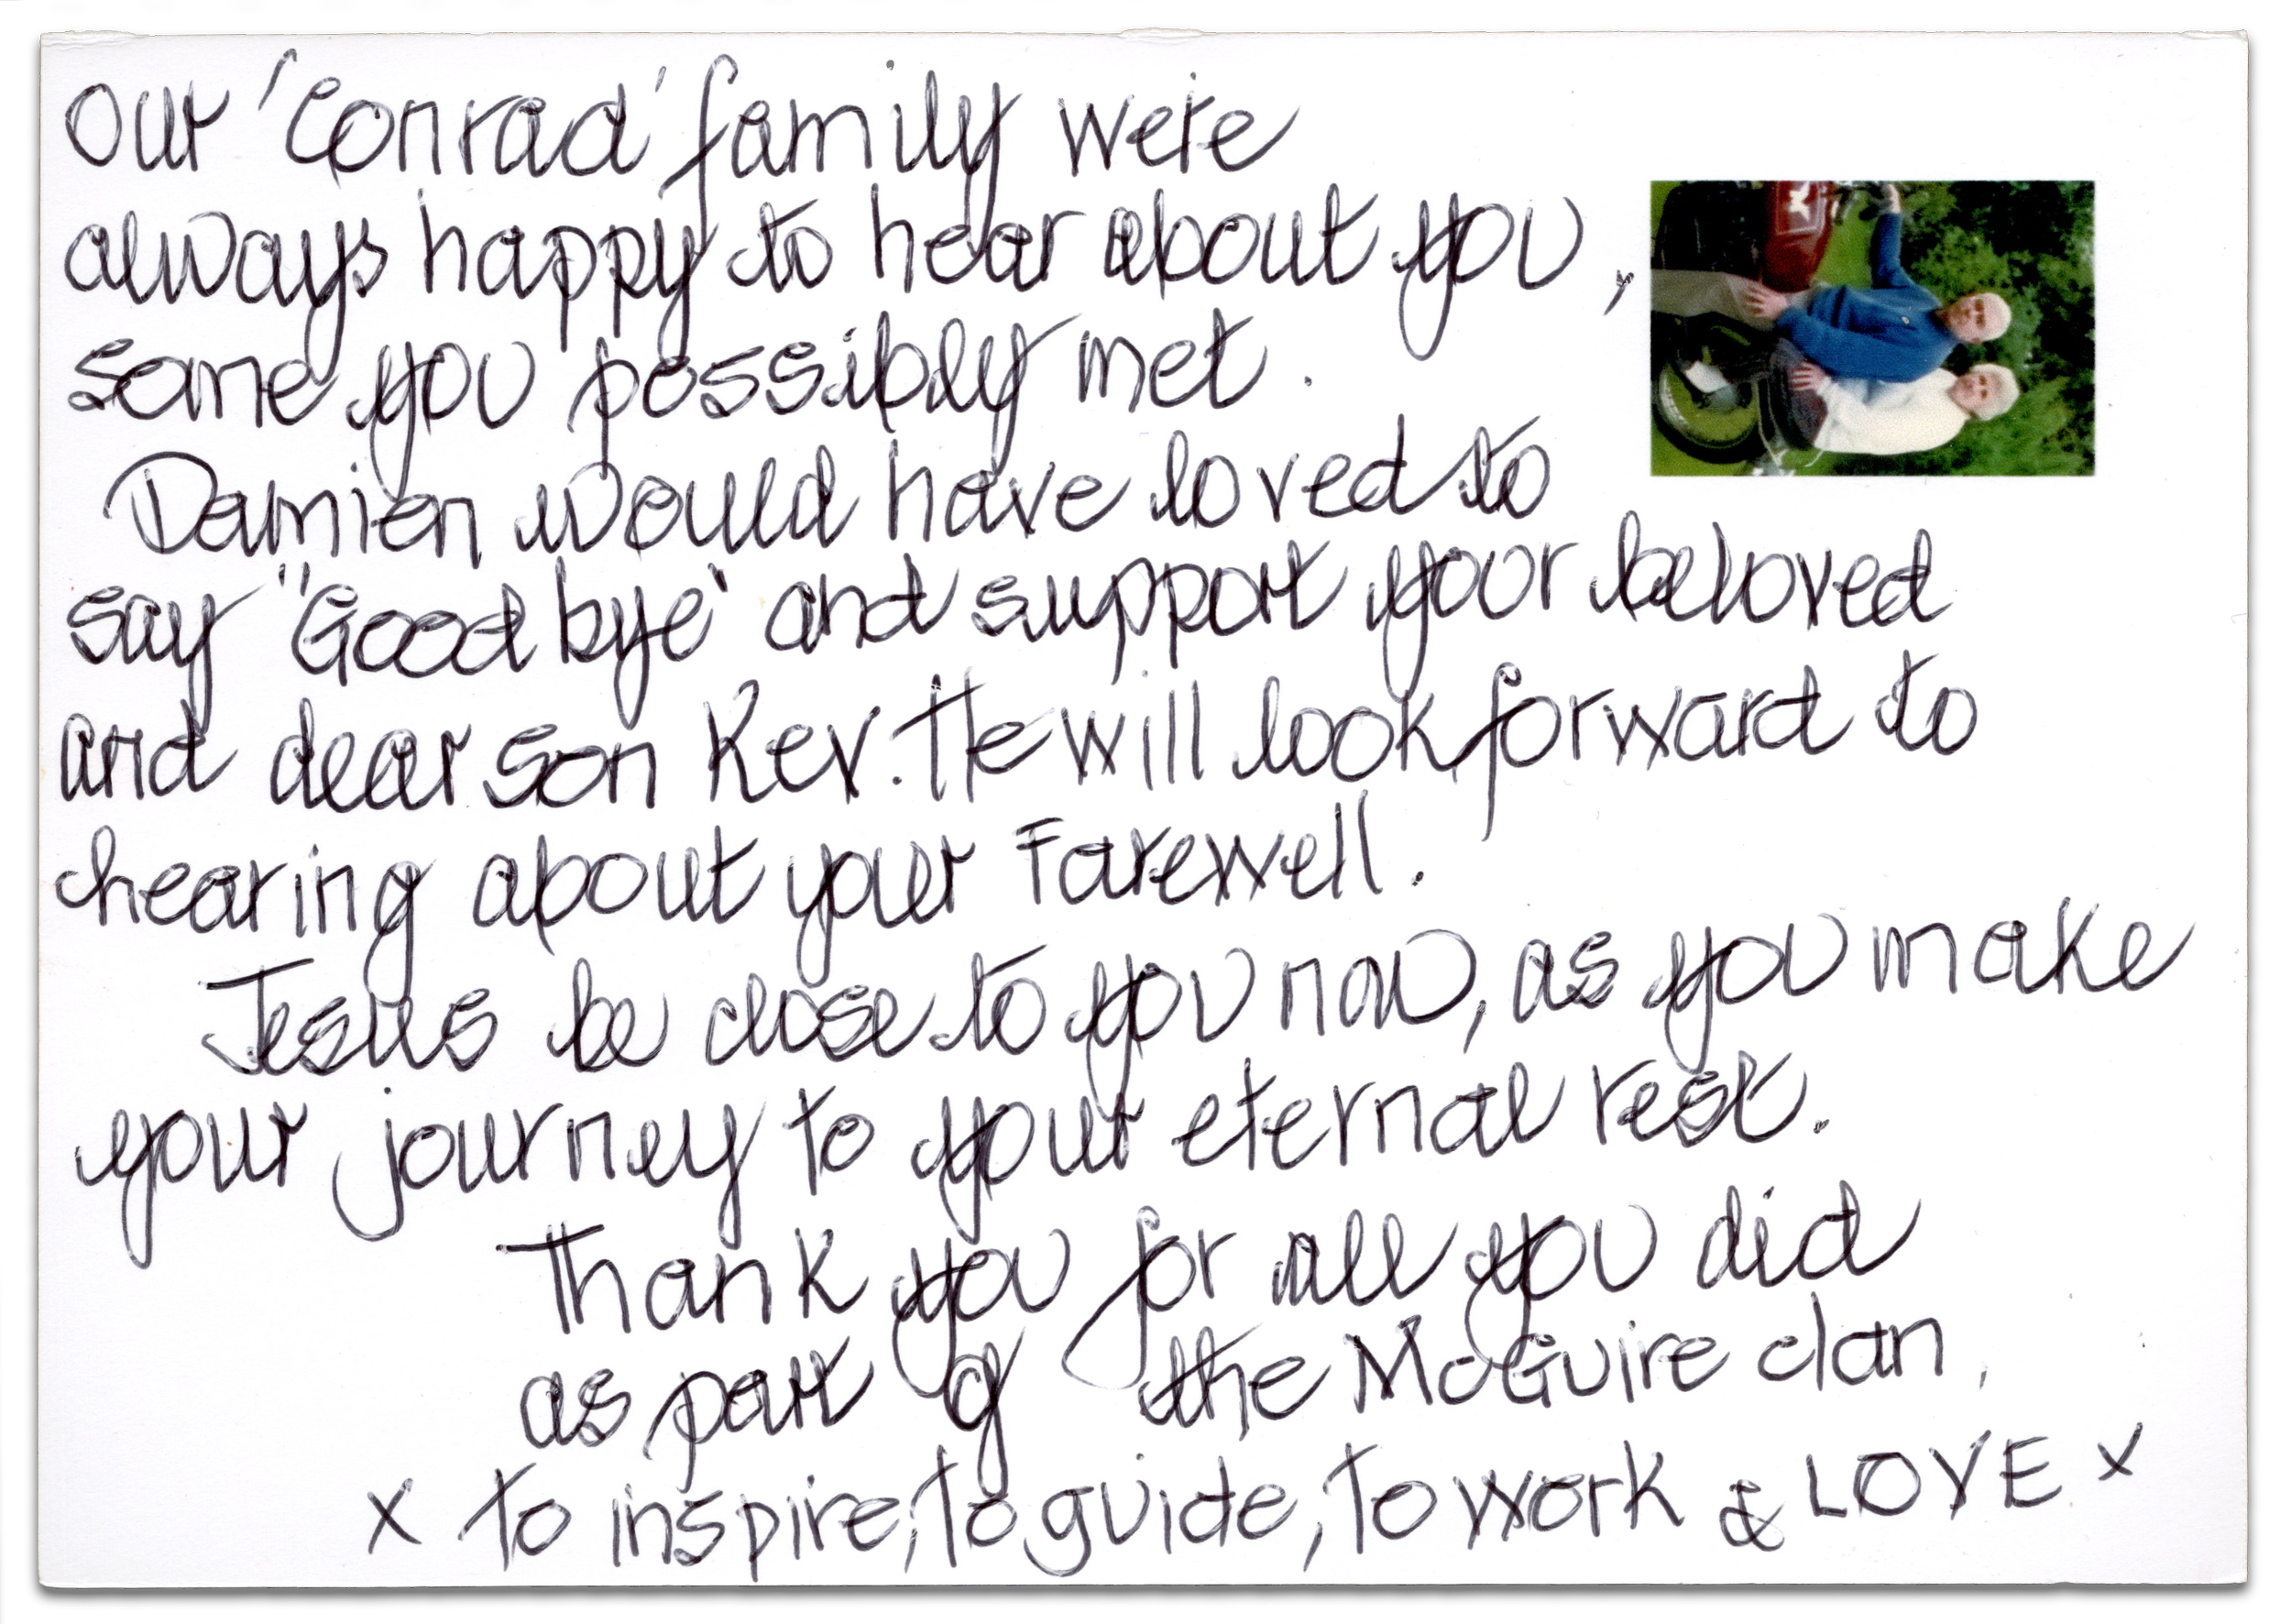 Our 'Conrad' family were
always happy to hear about you,
some you possibly met.
Damien would have loved to
say "Good bye' and support your beloved
and dear son Kev. He will look forward to
hearing about your Farewell.
Jesus be close to you now, as you make
your journey to your eternal rest.
Thank you for all you did
as part of the McGuire clan,
x to inspire, to guide, to work & LOVE x